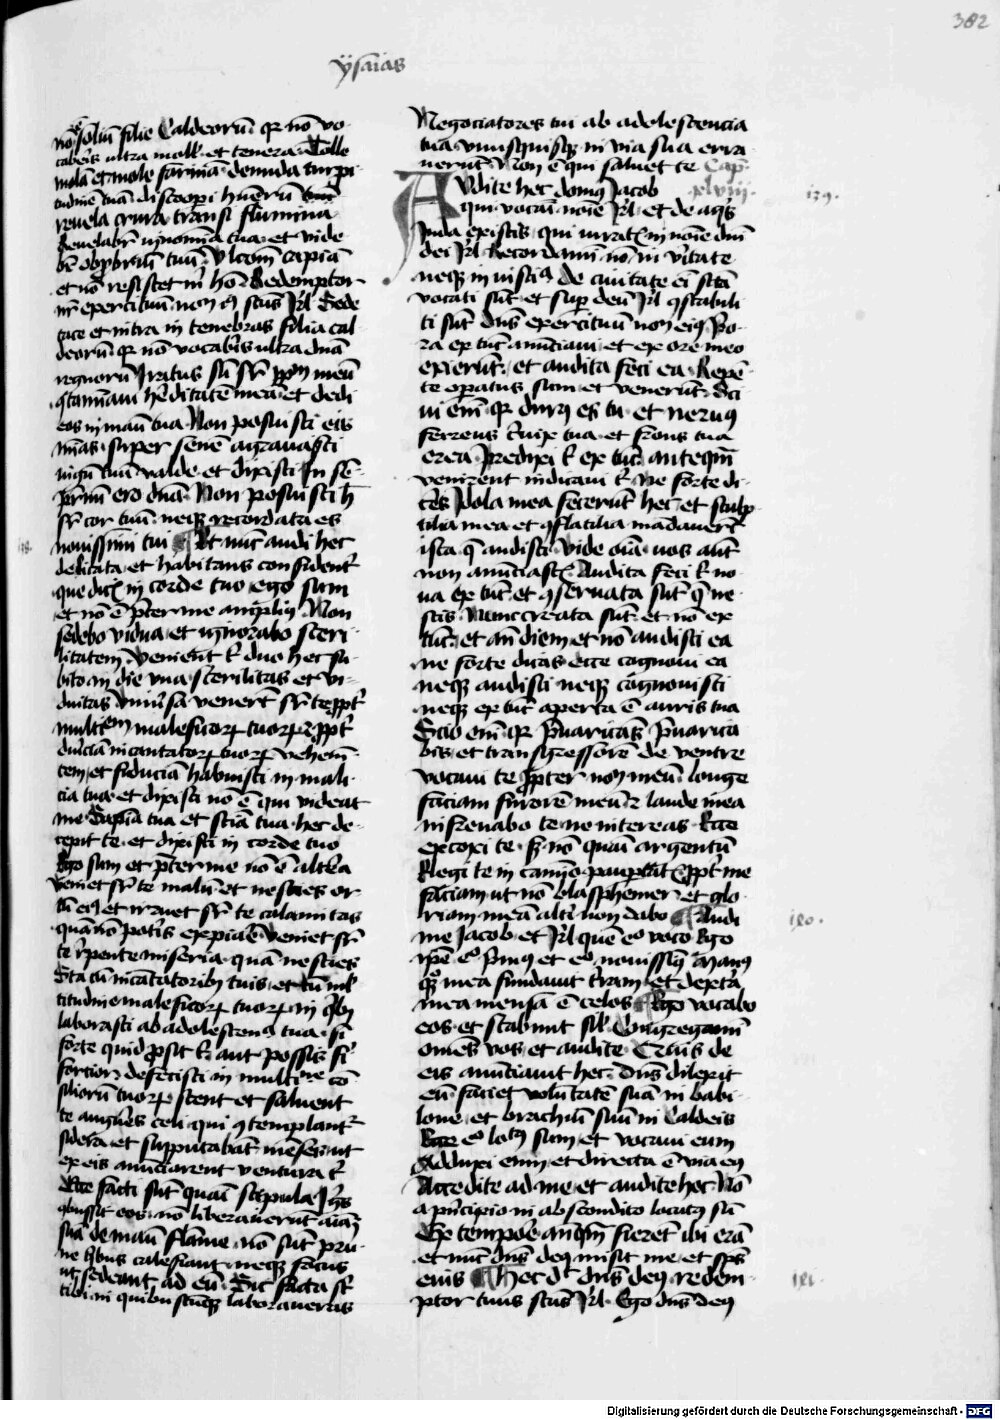 382
ysaias
no soliu filie Caldeoru qr no vo-
caberis ultra moll et tenera Tolle
mola et mole farina denuda turpi
tudine tua discoopi humeru
reuela crura transi flumina
Reuelabr ignomia tua et vide
br obprbriu tuu Vlcom capia
et no resistet m ho Redemptor
nr exercituu nom stus Irl Sede
tace et intra in tenebras filia cal
deoru qr no vocaberis ultra dna
regnoru Iratus su sr ppm meu
otamiaui heditate mea et dedi
eos in manu tua Non posuisti eis
mias super sene agrauasti
iugu tuu valde et dixisti In se-
piternu ero dna Non posuisti h
sr cor tuu neqz recordata es
nouissimi tui Et nuc audi hec
delicata et habitans confident
que dicis in corde tuo ego sum
et no e pter me amplius Non
sedebo vidua et ignorabo steri-
litatem Venient t duo hec su-
bito in die vna sterilitas et vi-
duitas Vniusa venert sr te ppt
multem maleficor tuor et ppt
duricia incantator tuor vehem-
tem et fiducia habuisti in mali-
cia tua et dixisti no e qui videat
me Sapia tua et scia tua hec de-
cepit te et dixisti in corde tuo
Ego sum et pter me no e altera
Veniet sr te malu et nescies or-
tu ei et irruet sr te calamitas
qua no poteris expiare veniet sr
te repente miseria qua nescies
Sta cu incatatoribus tuis et cu ml
titudine maleficor tuor in qbus
laborasti ab adolescencia tua si
forte quid prosit t aut possis fi
fortior defecisti in multitudine co-
silioru tuor Stent et saluent
te augures celi qui contemplantr
sidera et supputabat menses ut
ex eis anuciarent ventura t
Ecce facti sut quasi stipula Ignis
combussit eos no liberauerut aiaz
sua de manu flame no sut pru-
ne quibus calefiant neqz focus
ut sedeant ad eu Sic facta st
tibi in quibuscuqz laboraueras
Negociatores tui ab adolescencia
tua vnusquisqz in via sua erra
uerunt Non e qui saluet te Cap
AVdite hec domus Iacob xlviij 139.
qui vocai noie Irl et de aqis
Iuda existis qui iuratis in noie dni
dei Irl Recordamini no in veritate
neqz in iusticia De ciuitate ei sta
vocati sut et sup deu Irl constabili
ti sut dns exercituu nom eius Prio-
ra ex tuc anunciaui et ex ore meo
exierut et audita feci ea Repe-
te operatus sum et venerut Sci
ui eim qr durus es tu et neruus
ferreus ceruix tua et frons tua
erea Predixi t ex tuc anteqm
venirent indicaui t Ne forte di-
ceres Idola mea fecerut hec et sculp-
tilia mea et conflatilia madauert
ista q audisti vide oia vos aut
non anunciastis Audita feci t no-
ua ex tuc et conseruata sut q ne-
scis Nunc creata sut et no ex
tuc et an diem et no audisti ea
ne forte dicas ecce cognoui ea
neqz audisti neqz cognouisti
neqz ex tuc aperta e auris tua
Scio eim qr preuaricas preuarica
bis et transgressore de ventre
vocaui te Propter nomen meu longe
faciam furore meu et laude mea
infrenabo te ne intereas Ecce
excoxi te sz no quasi argentu
Elegi te in camino pauptatis Ppt me
faciam ut no blasphemer et glo-
riam mea alteri non dabo Audi 140.
me Iacob et Irl que ego voco Ego
ipe ego primus et ego nouissimus Manus
qz mea fundauit terram et dextera
mea mensa e celos Ego vocabo
eos et stabunt sil Congregamini
omes vos et audite Quis de
eis anunciauit hec Dns dilexit
eu faciet volutate sua in babi-
lone et brachiu suu in Caldeis
Ego ego locutus sum et vocaui eum
Adduxi eum et directa e via eius
Accedite ad me et audite hec No
a principio in abscondito locutus su
Ex tempore anteqm fieret ibi era
et nuc dns deus misit me et sps
eius Hec dt dns deus redem- 141.
ptor tuus stus Irl Ego dns deus
Digitalisierung gefördert durch die Deutsche Forschungsgemeinschaft - DFG